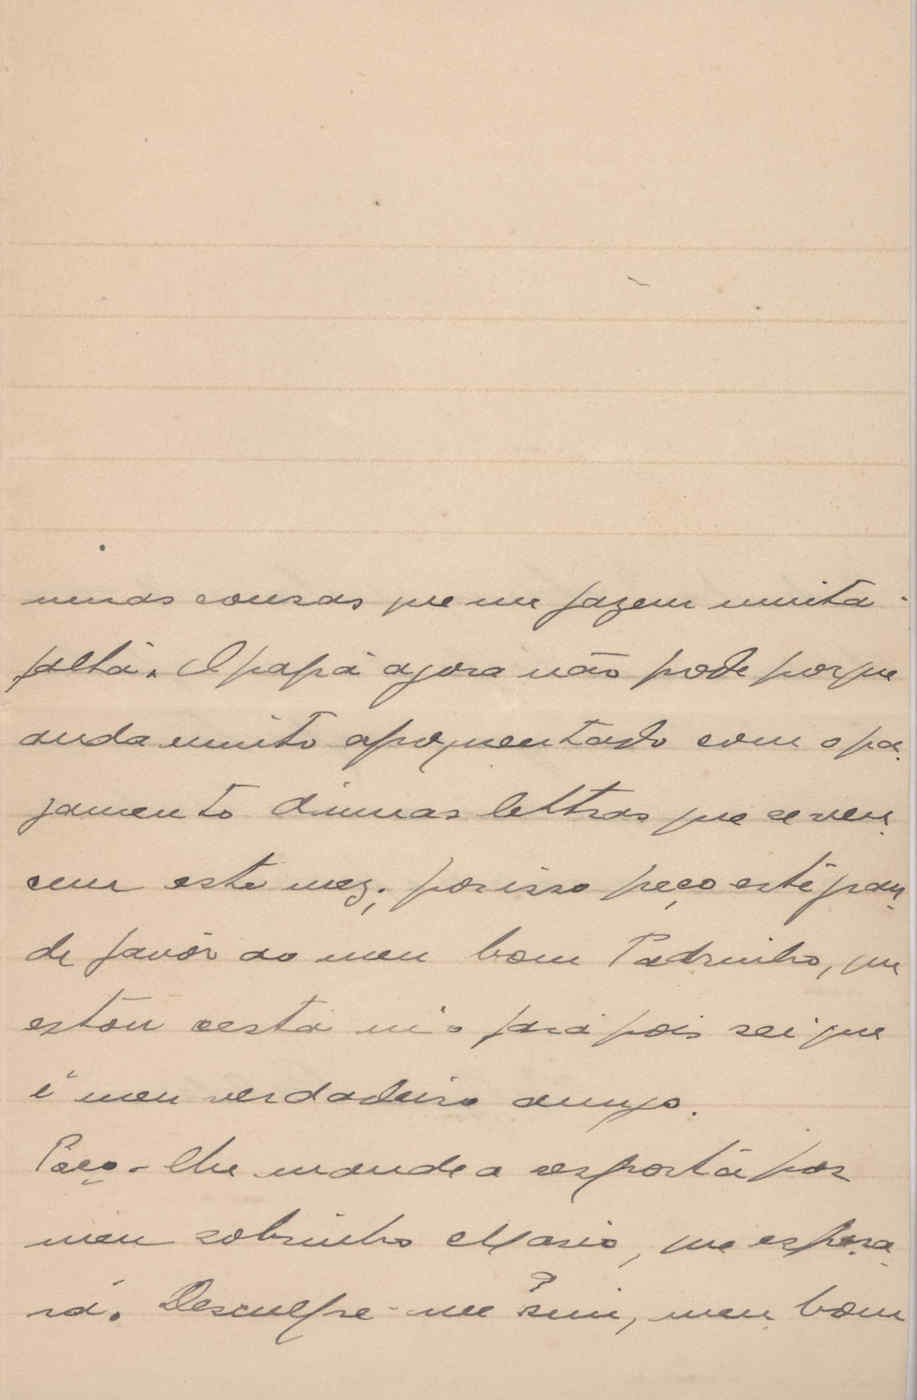 umas cousas que me fazem muita
falta. O papá agora não pode porque
anda muito apoquentado com o pa-
gamento d'umas lettras que se ven-
cem este mez; por isso peço este gran-
de favôr ao meu bom Padrinho, que
estou certa m'o fará pois sei que
é meu verdadeiro amigo.
Peço-lhe mande a resposta por
meu sobrinho Mario, que espera-
rá. Desculpe-me sim?, meu bom